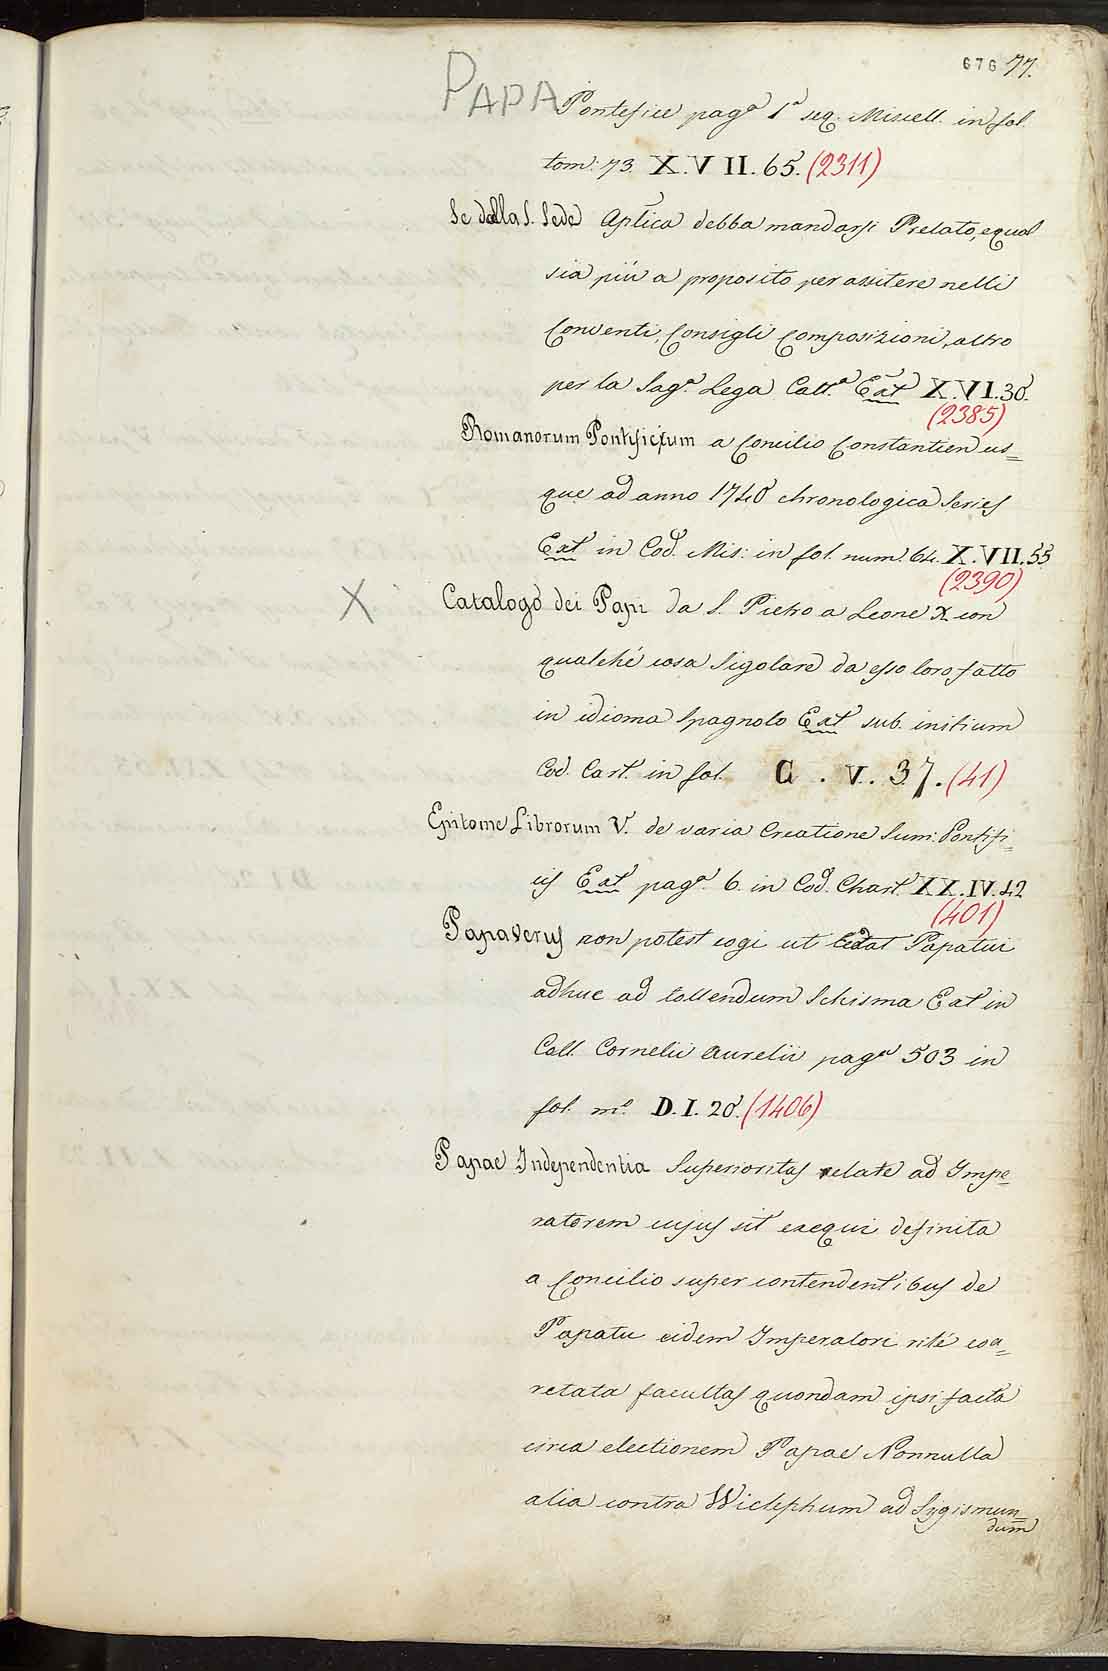 676 77.
PAPA Pontefice pagª 1ª seq. Miscell. in fol.
tom: 73. X. VII. 65. (2311)
Se dalla S. Sede Aplica debba mandarsi Prelato, e qual
sia più a proposito per assitere nelli
Conventi, Consigli Composizioni, altro
per la Sagª Lega Cattª Ext X. VI. 30.
(2385)
Romanorum Pontificium a Concilio Constantien us=
que ad anno 1740 chronologica Series
Ext in Cod. Mis: in fol. num. 64. X. VII. 55
(2390)
X Catalogo dei Papi da S. Pietro a Leone X con
qualché cosa Sigolare da esso loro fatto
in idioma Spagnolo Ext sub. initium
Cod. Cart. in fol. G. V. 37. (41)
Epitome Librorum V. de varia Creatione Sum: Pontifi=
cis Ext pagª 6. in Cod. Chart. XX. IV. 42
(401)
Papa verus non potest cogi ut cedat Papatui
adhuc ad tollendum Schisma Ext in
Coll. Cornelii Aurelii pagª 503 in
fol. mº D. I. 20. (1406)
Papae Independentia Superioritas relate ad Impe=
ratorem cujus sit exequi definita
a Concilio super contendentibus de
Papatu eidem Imperatori rité coa=
retata facultas quondam ipsi facta
circa electionem Papae Nonnulla
alia contra Wiclephum ad Sygismun=
dum